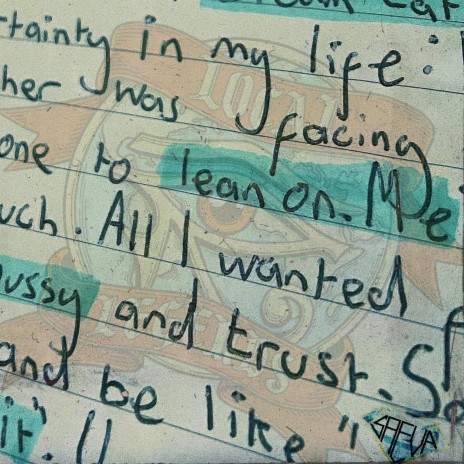 tainty in my life:
her was facing
one to lean on. Me
uch. All I wanted
ussy and trust. S
and be like "I
it".
LOCAL